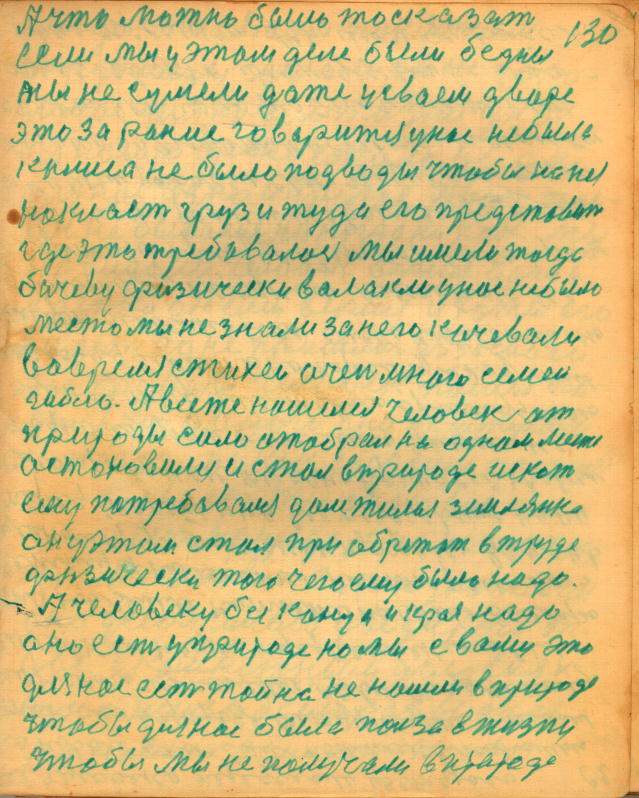 А что можно было то сказат
130
если мы у этом деле были бедны
мы не сумели даже у сваем дваре
это за рание говарится у нас не была
крылиа не было подводы чтобы на ней
накласт груз и туда его представит
где это требовалос мы имели тогда
бичеву физически валакли у нас не было
место мы не знали за него качевали
вовремя стихеи очен много семей
гибло. А васе же нашелся человек от
природы сило отобрал на одном месте
остоновили и стал в природе искат
ему потребовался дом жилы землянка
он у этом стал приобретат в труде
физически того чего ему было надо.
А человеку без конца и края надо
оно ест у природе но мы с вами это
для нас ест тойна не нашли в природе
чтобы для нас была полза в жизни
чтобы мы не получали в природе